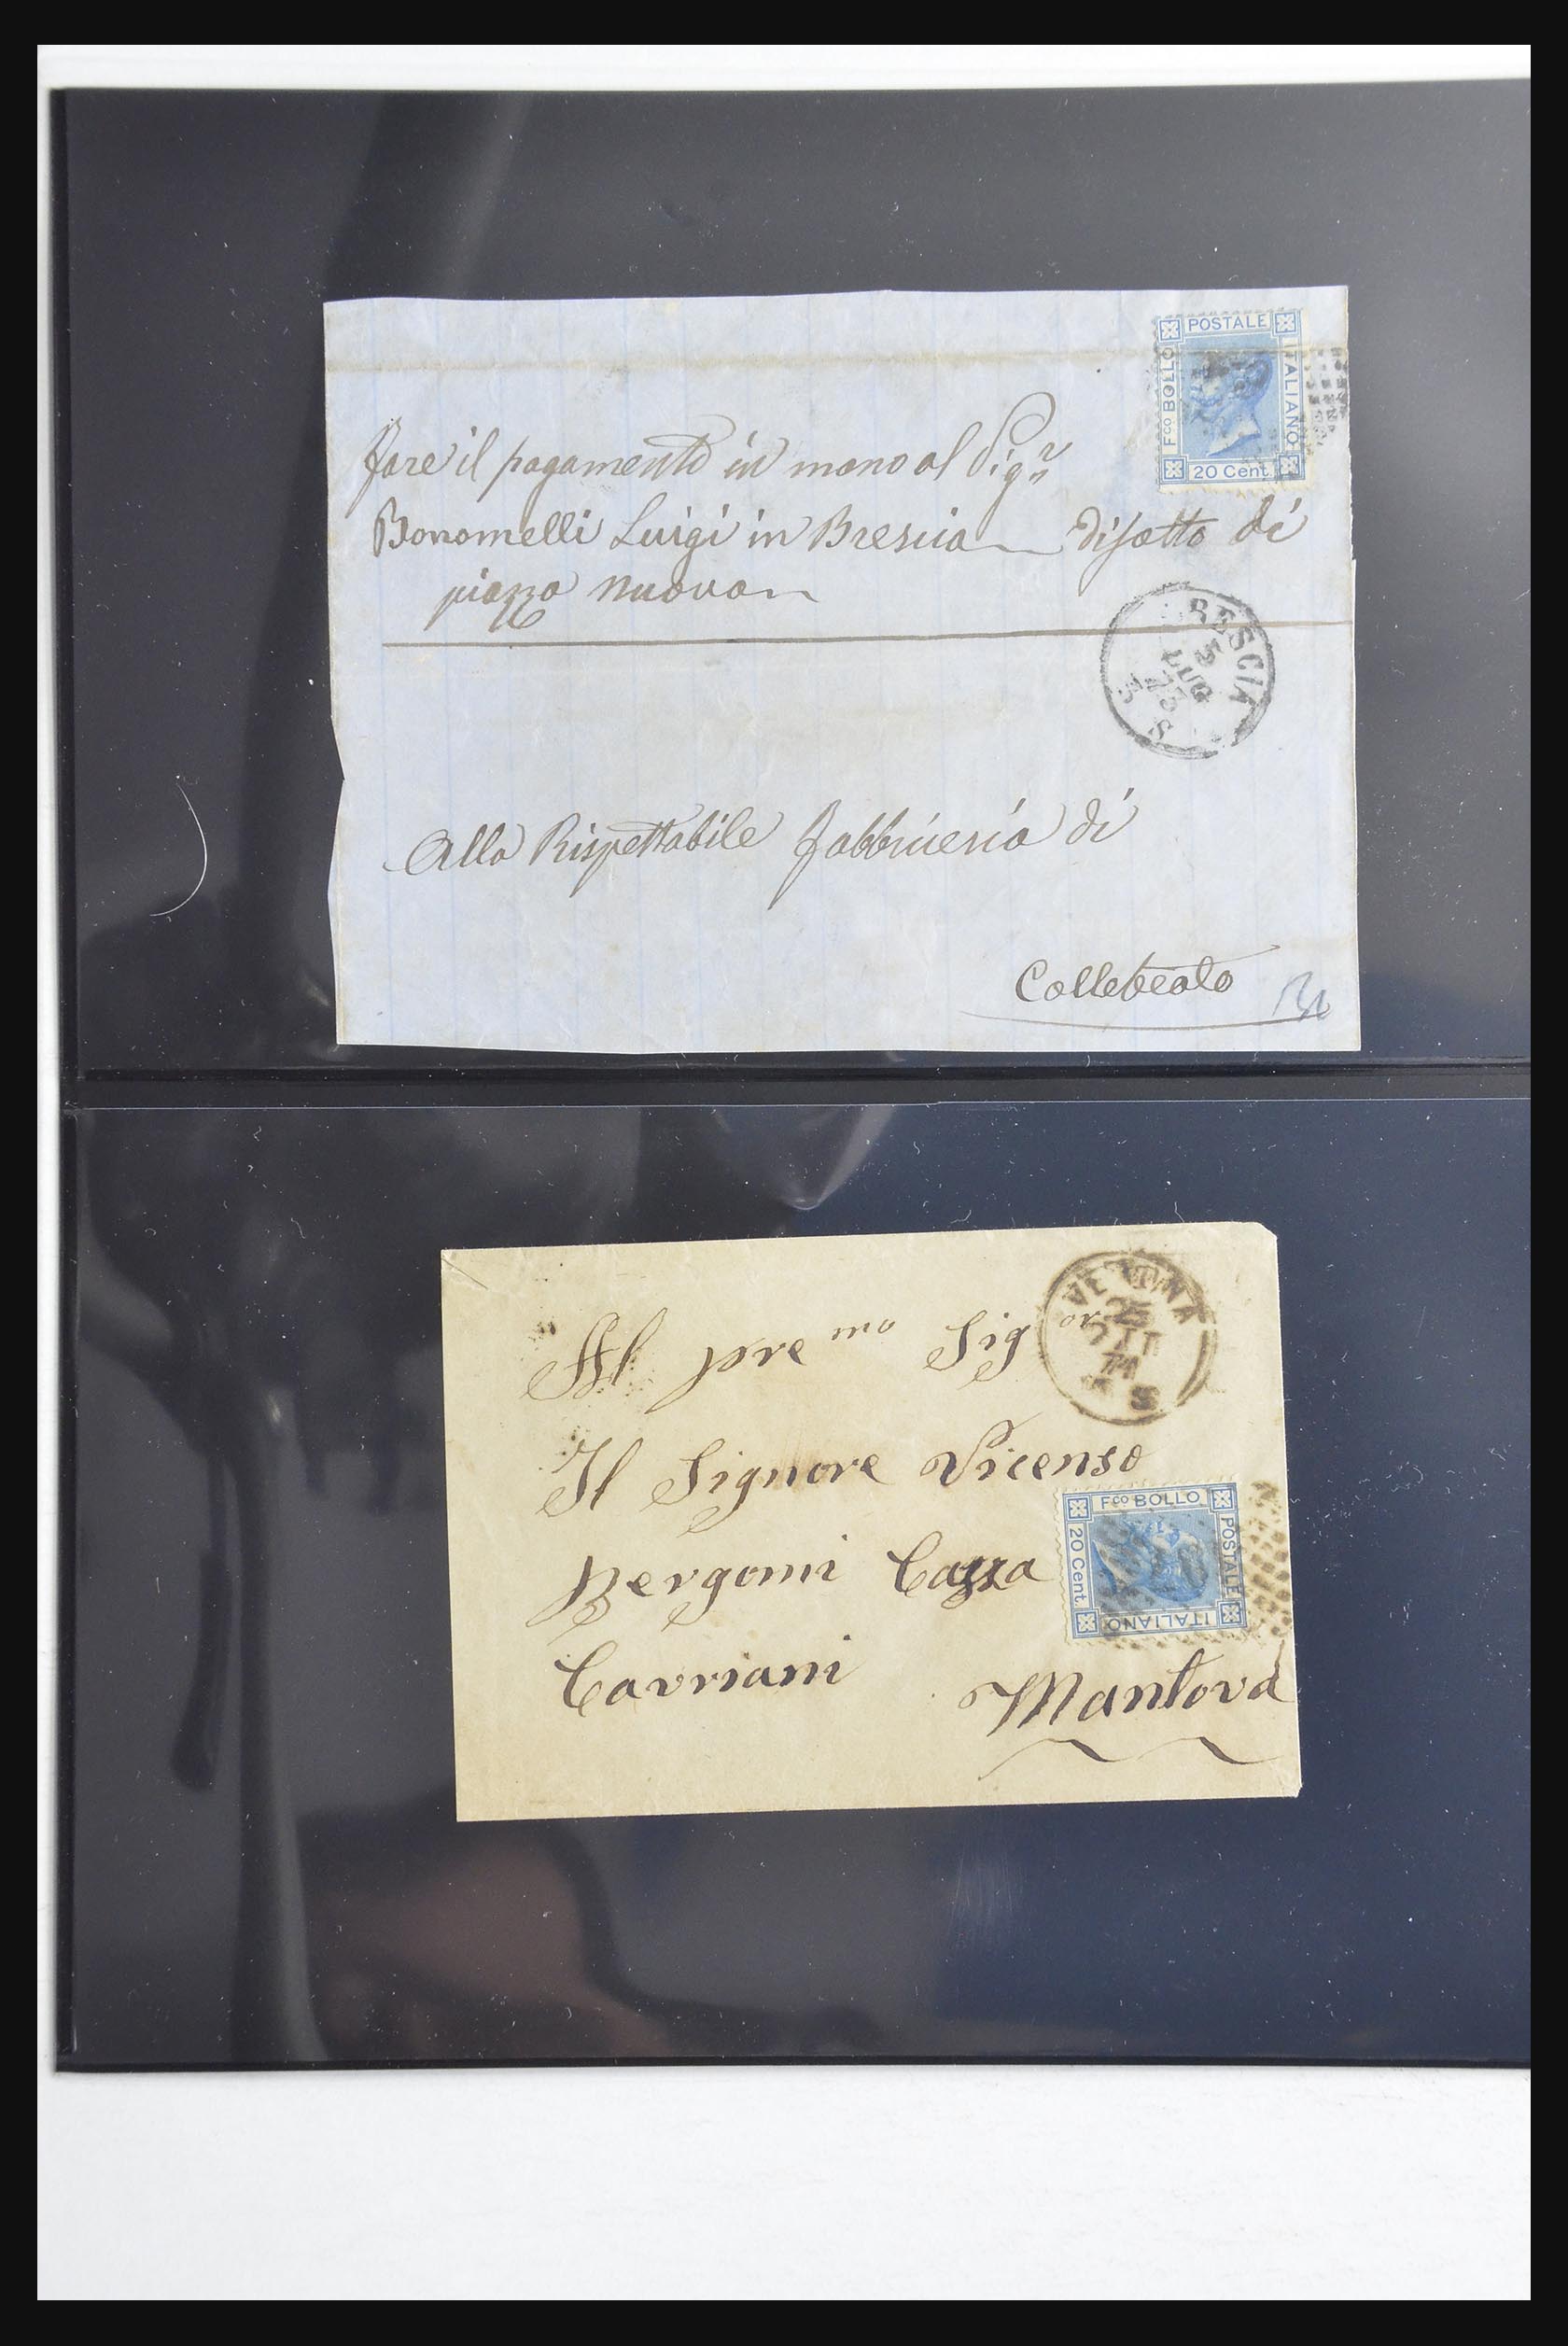 POSTALE
Fco BOLLO
ITALIANO
20 Cent.
fare il pagamento in mano al Sigr
Bonomelli Luigi in Brescia disotto di
piazza nuova
BRESCIA
5
LUG
73
3 S
Alla Rispettabile fabbricieria di
Collebeato
VERONA
25
OTT
74
S
Al pre mo Sig or
Il Signore Vicenso
Bergomi Cazza
Cavriani
Mantova
Fco BOLLO
20 Cent.
POSTALE
ITALIANO